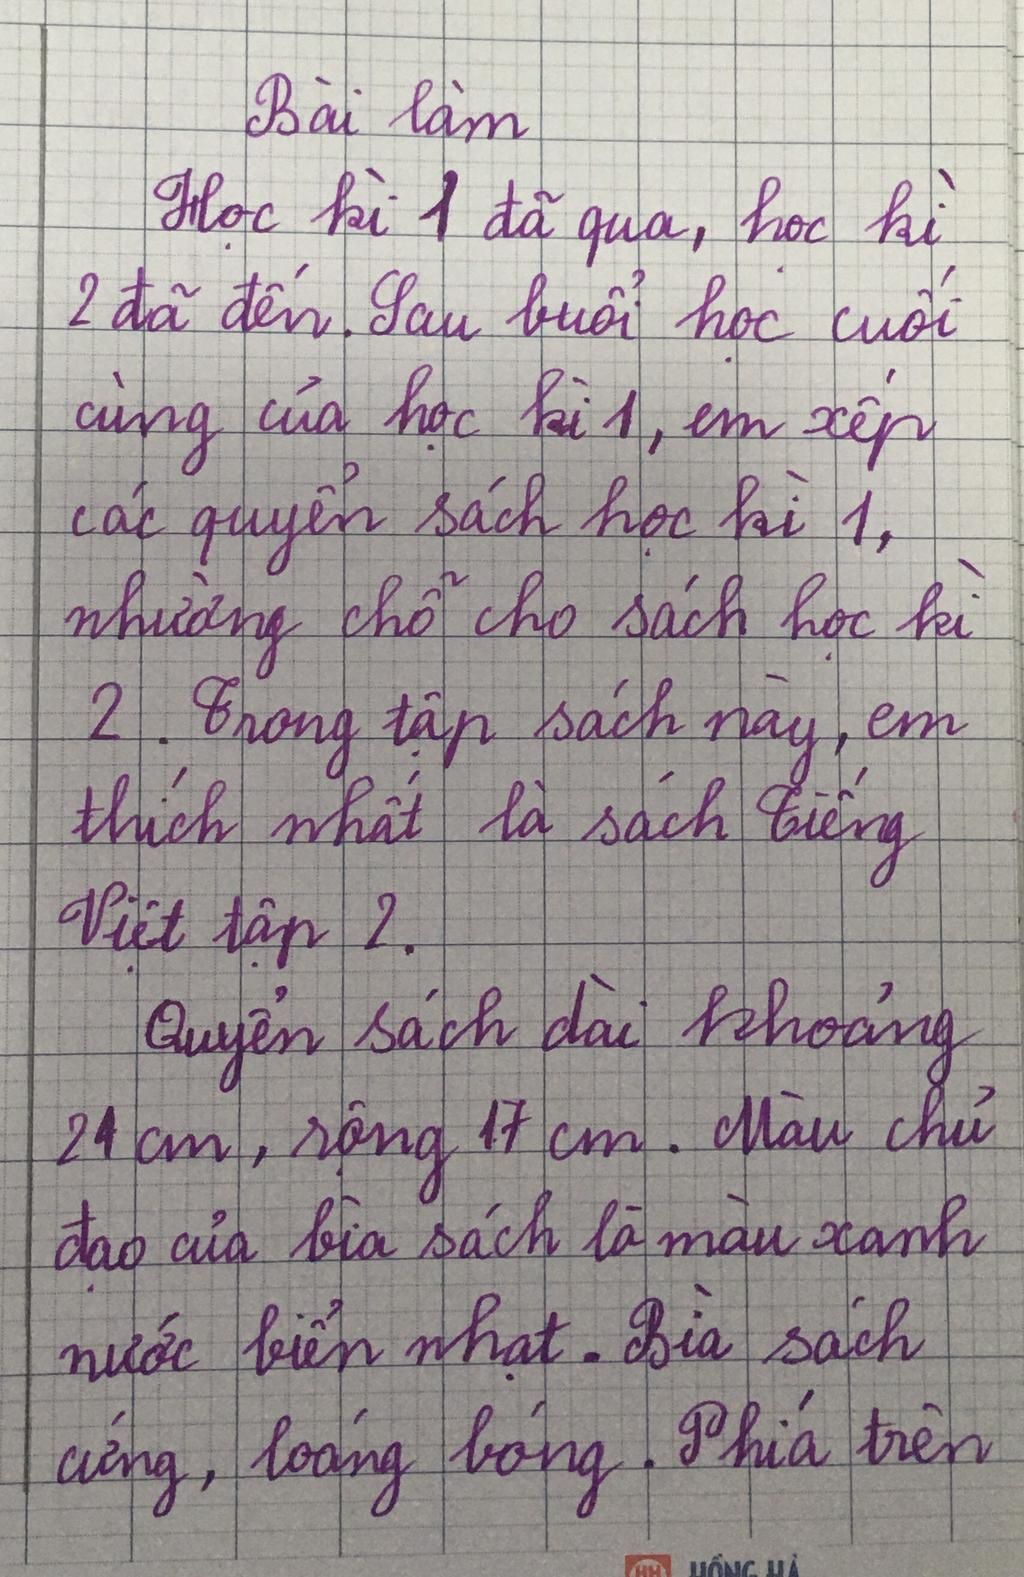 Bài làm
Học kì 1 đã qua, học kì
2 đã đến. Sau buổi học cuối
cùng của học kì 1, em xếp
các quyển sách học kì 1,
nhường chỗ cho sách học kì
2. Trong tập sách này, em
thích nhất là sách Tiếng
Việt tập 2.
Quyển sách dài khoảng
24 cm, rộng 17 cm. Màu chủ
đạo của bìa sách là màu xanh
nước biển nhạt. Bìa sách
cứng, loáng bóng. Phía trên
HH HỒNG HÀ